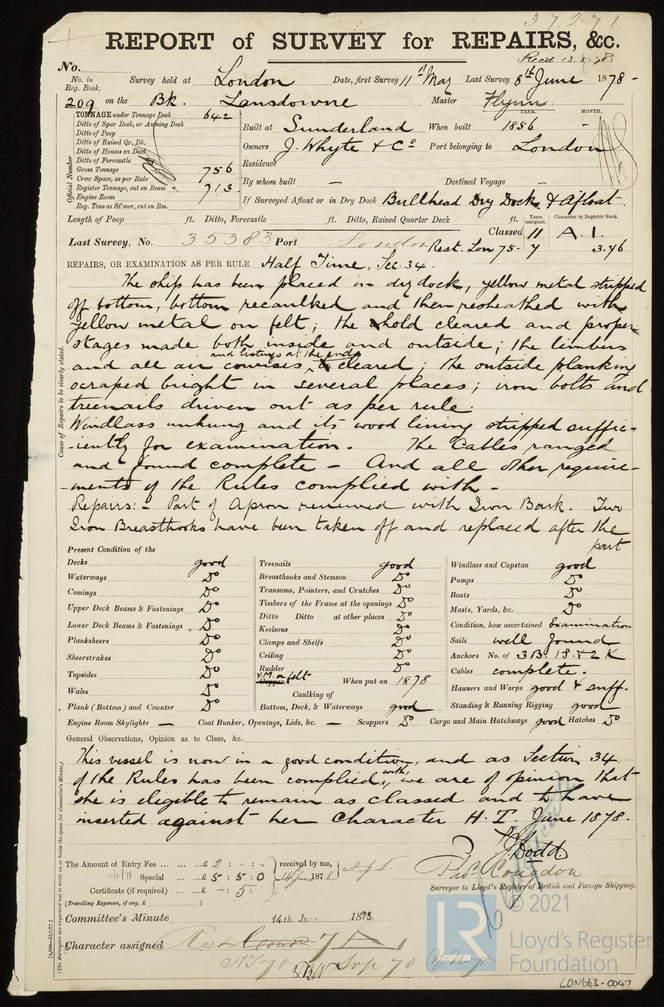 37271
REPORT OF SURVEY FOR REPAIRS, &c.
Recd 13.6.78
No.
No. in Reg. Book. Survey held at London Date, first Survey 11th May Last Survey 6th June 1878-
209 on the Bk. Lansdowne Master Flynn
TONNAGE under Tonnage Deck 642
Ditto of Spar Deck, or Awning Deck
Ditto of Poop
Ditto of Raised Qr. Dk.
Ditto of Houses on Deck
Ditto of Forecastle
Gross Tonnage 756
Crew Space, as per Rule
Register Tonnage, cut on Beam 713
Engine Room
Reg. Tons as St'mer, cut on Bm.
Official Number
YEAR. MONTH.
Built at Sunderland When built 1856 -
Owners J. Whyte & Co Port belonging to London
Residence
By whom built - Destined Voyage -
If Surveyed Afloat or in Dry Dock Bullhead Dry Dock & Afloat
Length of Poop ft. Ditto, Forecastle ft. Ditto, Raised Quarter Deck ft.
Years assigned. Character in Register Book.
Classed 11 A.1.
Last Survey, No. 35383 Port London Rest. Lon 75-7 3.76
REPAIRS, OR EXAMINATION AS PER RULE Half Time, Sec. 34.
Cause of Repairs to be clearly stated.
The ship has been placed in dry dock, yellow metal stripped
off bottom, bottom recaulked and then resheathed with
yellow metal on felt; the hold cleared and proper
stages made both inside and outside; the limbers
and listings at the ends
and all air courses cleared; the outside planking
scraped bright in several places; iron bolts and
treenails driven out as per rule.
Windlass unhung and its wood lining stripped suffic-
iently for examination. The Cables ranged
and found complete - And all other require-
-ments of the Rules complied with -
Repairs:- Part of Apron renewed with Iron Bark. Two
Iron Breasthooks have been taken off and replaced after the
part
Present Condition of the
Decks good
Waterways Do
Comings Do
Upper Deck Beams & Fastenings Do
Lower Deck Beams & Fastenings Do
Planksheers Do
Sheerstrakes Do
Topsides Do
Wales Do
Plank (Bottom) and Counter Do
Engine Room Skylights -
Treenails good
Breasthooks and Stemson Do
Transoms, Pointers, and Crutches Do
Timbers of the Frame at the openings Do
Ditto Ditto at other places Do
Keelsons Do
Clamps and Shelfs Do
Ceiling Do
Rudder Do
Y.M. on felt Copper When put on 1878
Caulking of
Bottom, Deck, & Waterways good
Coal Bunker, Openings, Lids, &c. - Scuppers Do
Windlass and Capstan good
Pumps Do
Boats Do
Masts, Yards, &c. Do
Condition, how ascertained Examination
Sails well found
Anchors No. of 3B 1S & 2K
Cables complete.
Hawsers and Warps good & suff.
Standing & Running Rigging good
Cargo and Main Hatchways good Hatches Do
General Observations, Opinion as to Class, &c.
This vessel is now in a good condition, and as Section 34
of the Rules has been complied with, we are of opinion that
she is eligible to remain as classed and to have
inserted against her character H.T. June 1878.
The Amount of Entry Fee ... £ 2 : - : -
Special ... £ 5 : 5 : 0
Certificate (if required) ... - : 5 : -
(Travelling Expenses, if any, £ )
received by me,
14 June 1878
Dodd
Congdon
Surveyor to Lloyd's Register of British and Foreign Shipping.
Committee's Minute 14th June 1878.
Character assigned
© 2021
LR
Lloyd's Register
Foundation
LON663-0047